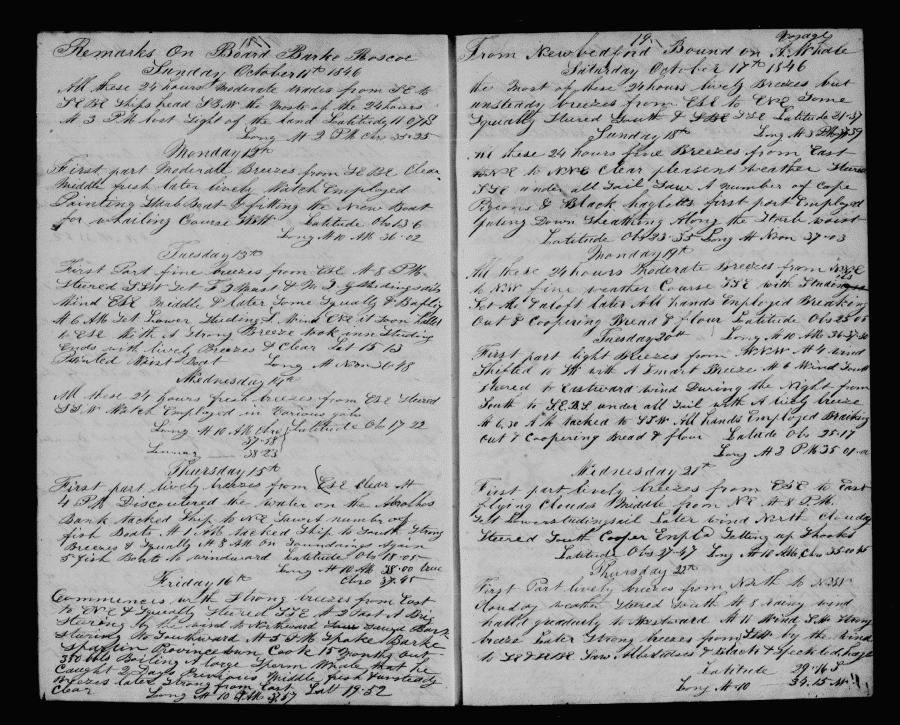 18
Remarks On Board Barke Roscoe
Sunday October 11th 1846
All these 24 hours Moderate trades from SE to
SEBE Ships head SSW the Moste of the 24 hours
At 3 PM lost Sight of the land Latitude 11
Long At 2 PM Chro 35-25
Monday 12th
First part Moderate Breezes from SEBE Clear
Middle fresh later lively Watch Employed
Painting Starb Boat & fitting the New Boat
for whaling Course SSW Latitude Obs 13 6
Long At 10 AM 36-02
Tuesday 13th
First Part fine breezes from ESE At 8 PM
Steered SSW Set F T Mast & M T G Studingsails
Wind ESE Middle & later Some Squally & Baffling
At 6 AM Set Lower Studing S Wind ENE at Noon
to ESE With A Strong Breeze took inn Studing
Ends with lively Breezes & Clear Lat 15 13
Painted Waist Boat Long At Noon 36-48
Wednesday 14th
All these 24 hours fresh breezes from ESE Steered
SSW Watch Employed in Various jobs
Long At 10 AM Chro Latitude Ob 17 22
37-58
Lunar 38-23
Thursday 15th
First part lively breezes from ESE Clear At
4 PM Discoulered the water on the
Bank tacked Ship to NE Saw A number of
fish Boats At 1 AM tacked Ship to South Strong
Breezes & Squally At 8 AM on Soundings Saw
5 fish Boats to windward Latitude Obs 18-00
Long At 10 AM 38-00 true
Chro 37-45
Friday 16th
Commences with Strong breezes from East
to ENE & Squally Steered SSE At 2 Past A Brig
Stering by the wind to Northward Saw Bark
Stering to Southward At 5 PM Spoke Barke
Spartin Provincetown Cook 15 Months out
350 bbls Boiling A large Sperm Whale that he
Caught 2 Days Previous Middle fresh & unsteady
breezes later Strong from East
Clear Long At 10 AM 57 Lat 19-52
19
From Newbedford Bound on A Whale Voyage
Saturday October 17th 1846
the Most of these 24 hours lively Breezes but
unsteady breezes from ESE to ENE Some
Squally Steered South & SBE SSE Latitude 21-57
Long At 3 PM
Sunday 18th
All these 24 hours fine Breezes from East
to NNE Clear pleasent weather Steered
SSE under all Sail Saw A number of Cape
Pigeons & Black hagletts first part Employed
Down Sheathing Along the Starb waist
Latitude Obs 23-35 Long At Noon 37-03
Monday 19th
All these 24 hours Moderate Breezes from NNE
to NW fine weather Course SSE with Studingsails
Set low & aloft later All hands Employed Breaking
Out & Coopering Bread & flour Latitude Obs 25 05
Tuesday 20th Long At 10 AM 36-37-30
First part light Breezes from NNW At 4 wind
Shifted to SW with A Smart Breeze At 6 Wind South
Steered to Eastward wind During the Night from
South to SEBS under all Sail with A lively breeze
At 6,30 AM tacked to SSW All hands Employed Breaking
Out & Coopering Bread & flour Latitude Obs 25-17
Long At 2 PM 35-01-00
Wednesday 21st
First part lively breezes from ESE to East
flying Clouds Middle from NE At 8 PM
Set Lower Studingsail later wind North Cloudy
Steered South Cooper Empld Setting up Shooks
Latitude Obs 27-47 Long At 10 AM Chro 35-00-45
Thursday 22d
First Part lively breezes from North to NNW
Cloudy weather Steered South At 8 rainy wind
hauld gradually to Westward At 11 Wind SW Strong
breeze Later Strong breezes from SSW by the Wind
to SE & SEBE Saw Albatross & Blacks & Speckled haglets
Latitude 29-16 S
Long At 10 34.15 W